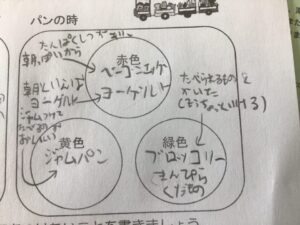 パンの時
たんぱくしつが
朝っぱから
赤色
ベーコンエッグ
ヨーグルト
朝といえば
ヨーグルト
ジャムつけて
たべるのが
おいしい
たべられるものを
かいた
黄色
ジャムパン
緑色
ブロッコリー
きんぴら
くだもの